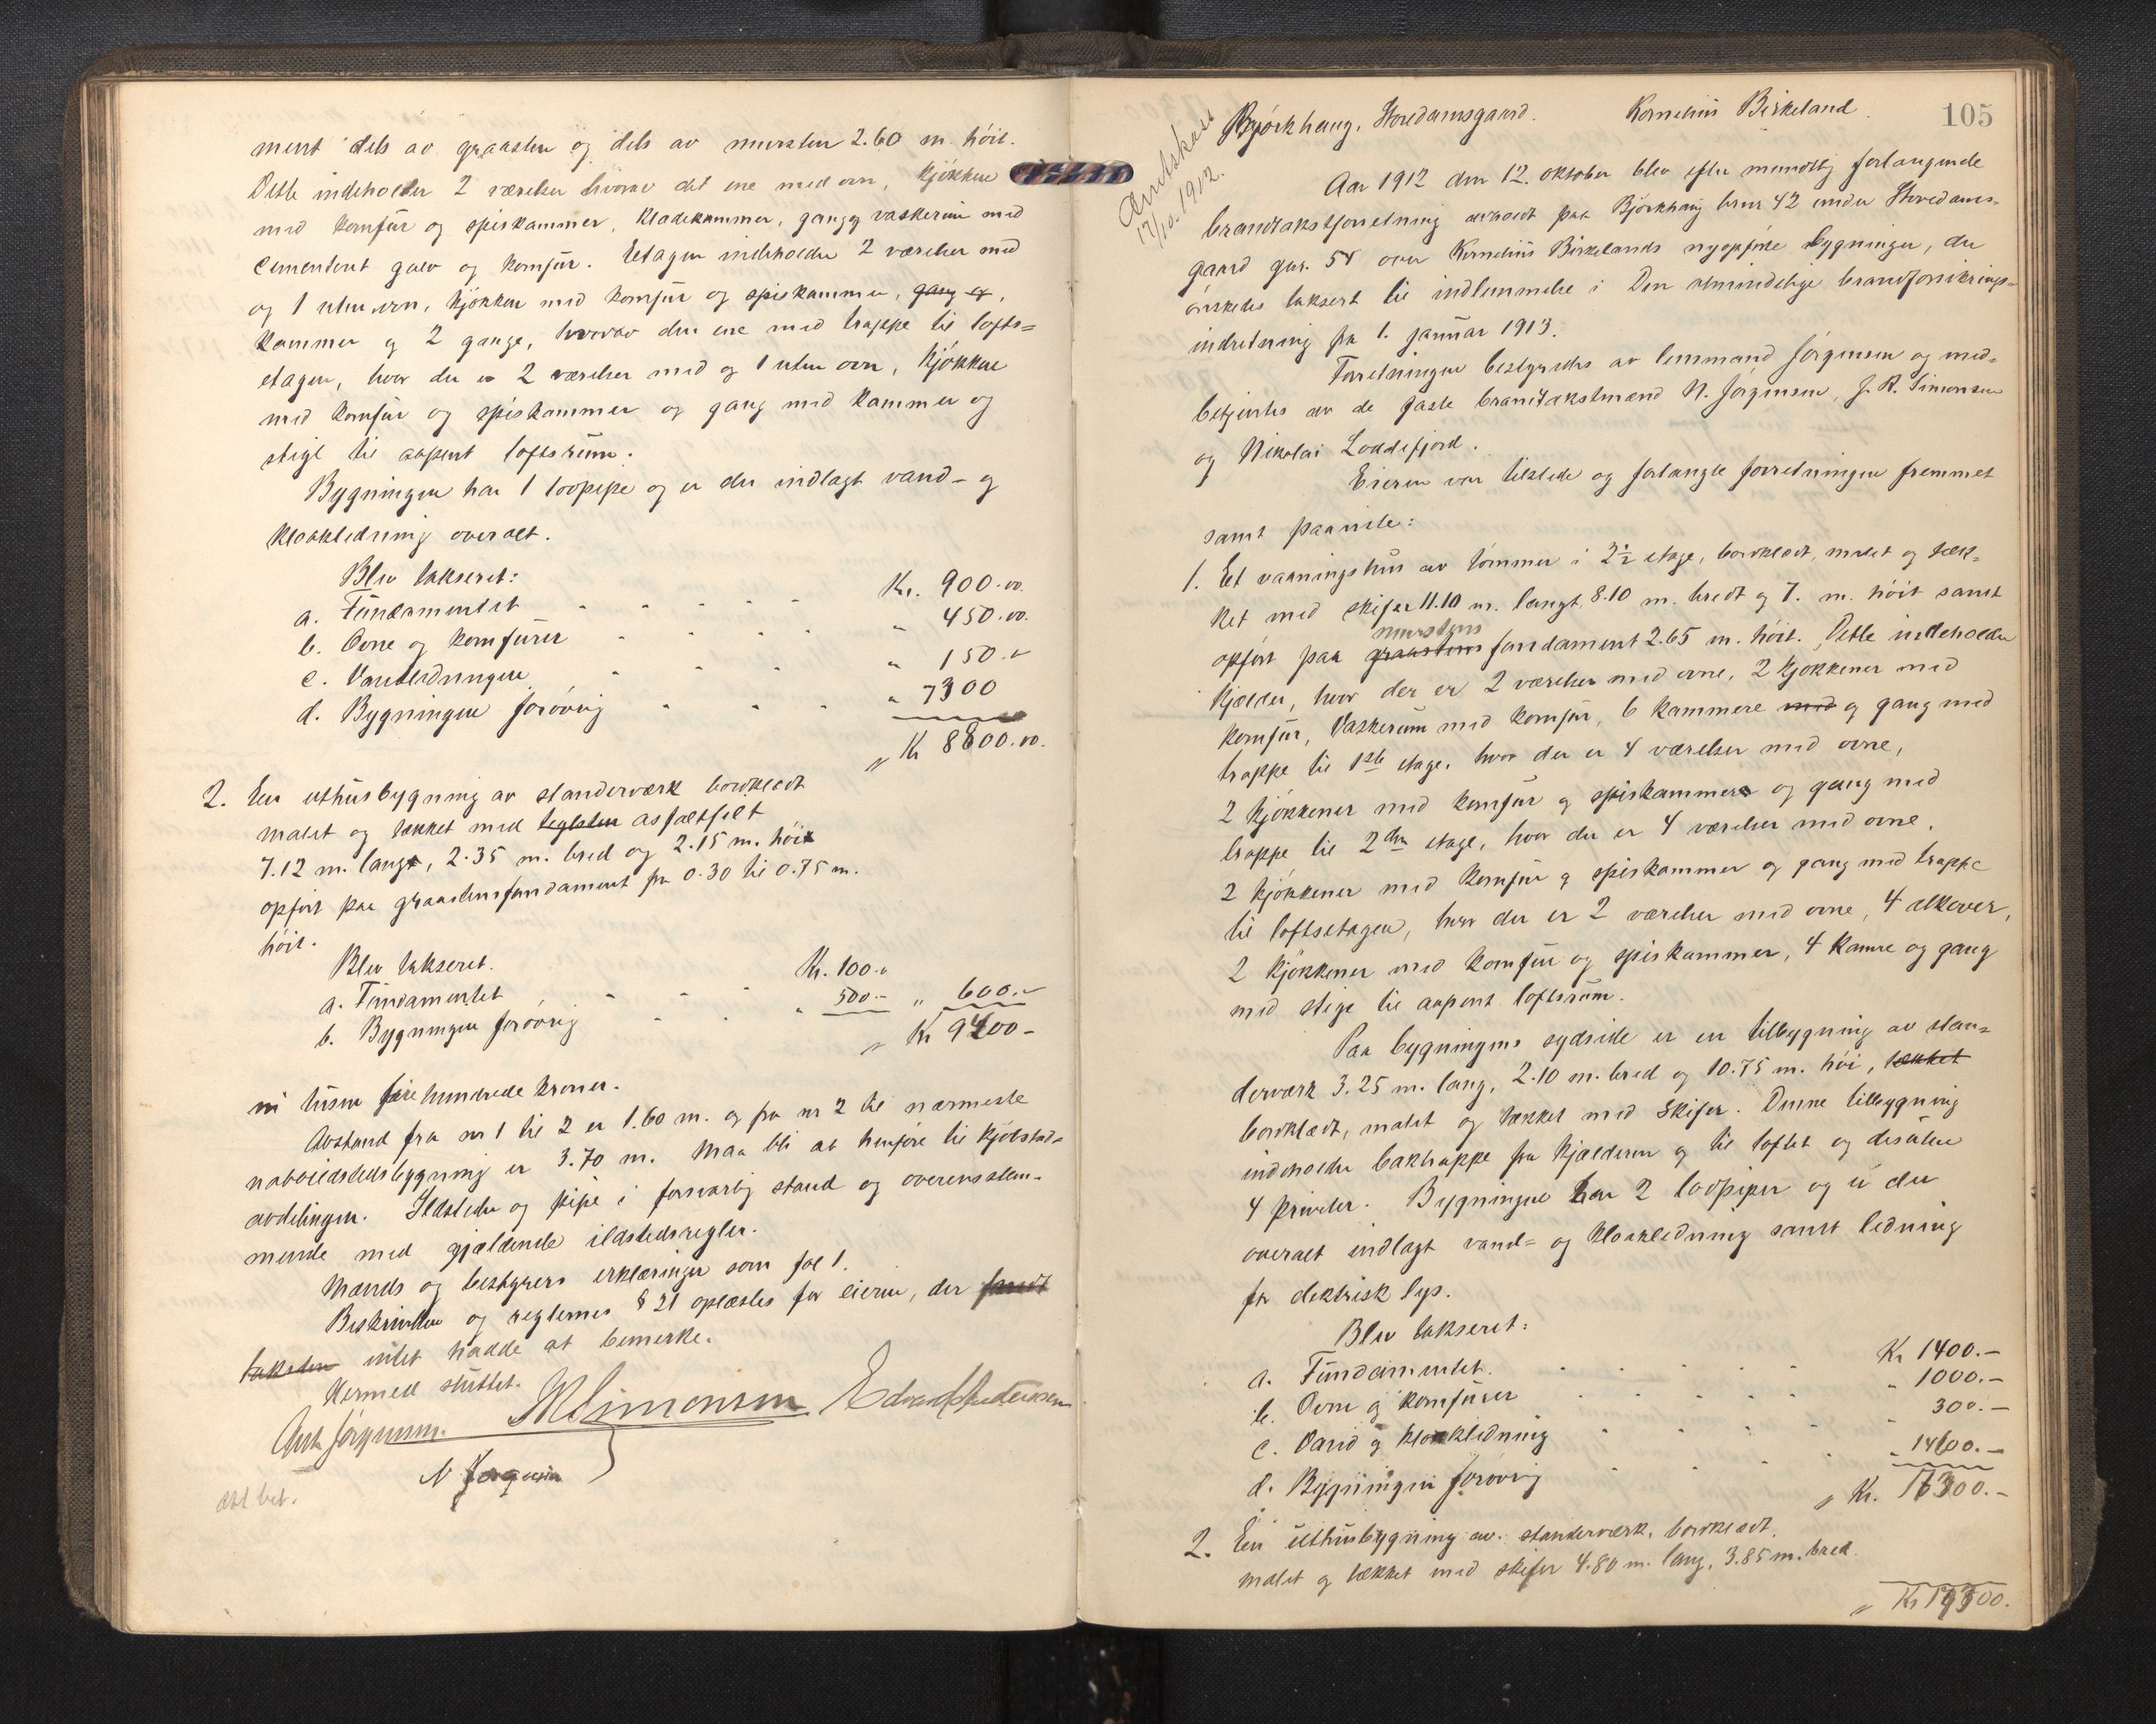 ment dels av graasten og dels av mursten 2.60 m. höit.
Dette indeholder 2 værelser hvorav det ene med ovn, kjökken
med komfür og spiskammer, klædekammer, gang og vaskerüm med
cementert gulv og komfür. Etagen indeholder 2 værelser med
og 1 uten ovn, kjökken med komfür og spiskammer, gang og,
kammer og 2 gange, hvorav den ene med trappe til lofts=
etagen, hvor der er 2 værelser med og 1 uten ovn, kjökken
med komfür og spiskammer og gang med kammer og
stige til aapent loftsrüm.
Bygningen har 1 lodpipe og er der indlagt vand- og
kloakledning overalt.
Blev takseret:
a. Fündamentet - - - - - Kr. 900.00.
b. Ovne og komfürer - - - - " 450.00.
c. Vandledningen - - - " 150.-
d. Bygningen forövrig - - - " 7300
Kr 8800.00.
2. En uthüsbygning av standerværk bordklædt
malet og tækket med teglsten asfaltfilt
7.12 m. langt, 2.35 m. bred og 2.15 m. höit
opfört paa graastensfundament fra 0.30 til 0.75 m.
höit.
Blev takseret.
a. Fündamentet - - - Kr. 100.-
b. Bygningen forövrig - - " 500.- " 600.-
Kr 9400-
ni tüsen fire hundrede kroner.
Avstand fra nr 1 til 2 er 1.60 m. og fra nr 2 til nærmeste
naboildstedsbygning er 3.70 m. Maa bli at henföre til kjöbstad=
avdelingen. Ildsteder og pipe i forsvarlig stand og overensstem-
mende med gjældende ildstedsregler.
Mænds og bestyrers erklæringer som fol 1.
Beskrivelse og reglernes § 21 oplæstes for eieren, der fandt
taksten intet hadde at bemerke.
Hermed slüttet.
Ant. Jörgensen. JRSimonsen Edvard
N Jörgensen
att. bet.
105
Björkhaug, Hovedamsgaard. Kornelius Birkeland.
Avertskass
17/10. 1912.
Aar 1912 den 12. oktober blev efter mundtlig forlangende
brandtakstforretning avholdt paa Björkhaug brnr 42 under Hovedams=
gaard gnr. 58 over Kornelius Birkelands nyopförte bygninger, der
önskedes taksert til indlemmelse i Den almindelige brandforsikrings=
indretning fra 1. januar 1913.
Forretningen bestyredes av lensmand Jörgensen og med=
betjentes av de faste brandtakstmænd N. Jörgensen, J. R. Simonsen
og Nikolai Loddefjord.
Eieren var tilstede og forlangte forretningen fremmet
samt paaviste:
1. Et vaaningshüs av tömmer i 2½ etage, bordklædt, malet og tæk=
ket med skifer 11.10 m. langt, 8.10 m. bredt og 7. m. höit samt
murstens
opfört paa graastens fundament 2.65 m. höit. Dette indeholder
kjælder, hvor der er 2 værelser med ovne, 2 kjökkener med
komfür, Vaskerüm med komfür, 6 kammere med og gang med
trappe til 1ste etage, hvor der er 4 værelser med ovne,
2 kjökkener med komfür og spiskammer og gang med
trappe til 2den etage, hvor der er 4 værelser med ovne,
2 kjökkener med komfür og spiskammer og gang med trappe
til loftsetagen, hvor der er 2 værelser med ovne, 4 alkover,
2 kjökkener med komfür og spiskammer, 4 kamre og gang
med stige til aapent loftsrüm.
Paa bygningens sydside er en tilbygning av stan=
derværk 3.25 m. lang, 2.10 m. bred og 10.75 m. höi, tækket
bordklædt, malet og tækket med skifer. Denne tilbygning
indeholder baktrappe fra kjælderen og til loftet og desüten
4 priveter. Bygningen har 2 lodpiper og er der
overalt indlagt vand= og kloakledning samt ledning
for elektrisk lys.
Blev takseret:
a. Fündamentet. - - - - Kr 1400.-
b. Ovne og komfürer - - - - " 1000.-
c. Vand og kloakledning - - - " 300.-
d. Bygningen forövrig - - - " 14600.-
Kr. 17300.-
2. En uthüsbygning av standerværk, bordklædt,
malet og tækket med skifer 4.80 m. lang, 3.85 m. bred.
Kr 17300.